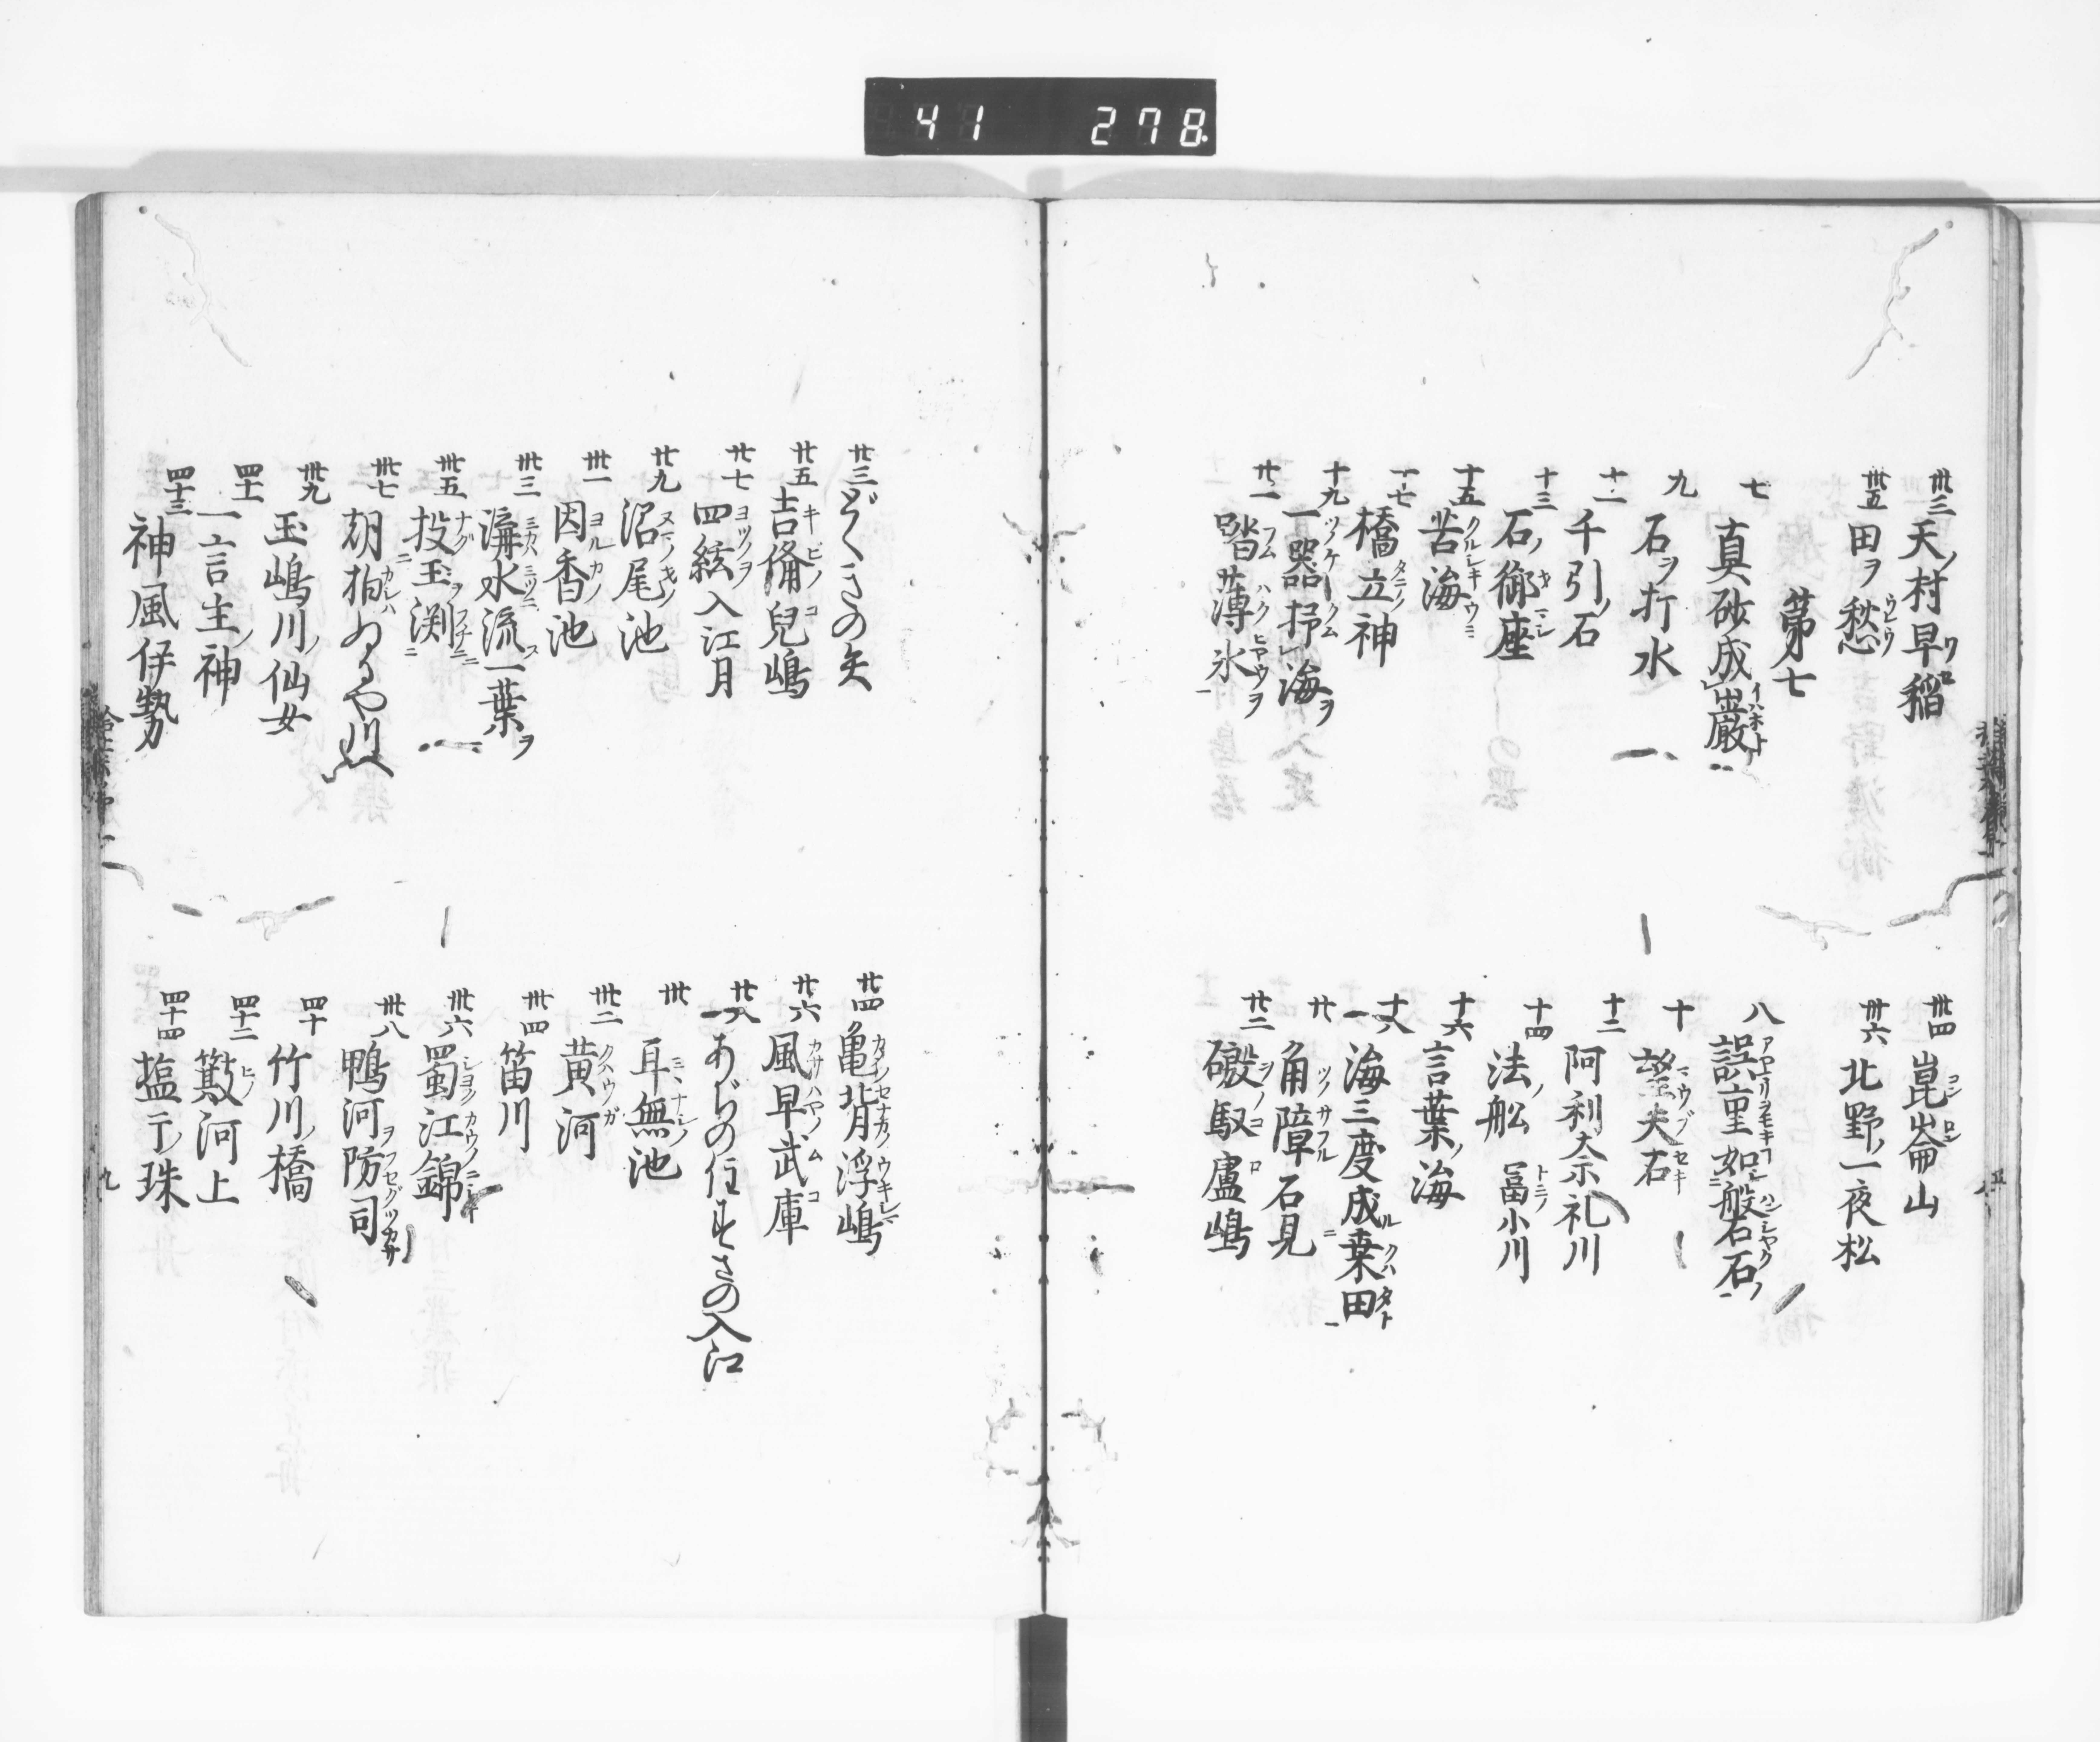 41 278
卅三 天ノ村早稲
卅四 崑崙山
卅五 田ヲ愁
卅六 北野ノ一夜松
第七
七 真砂成巌
八 誤重如般若石
九 石ヲ打水
十 望夫石
十一 千引ノ石
十二 阿利奈礼川
十三 石ノ御座
十四 法ノ舩 冨小川
十五 苦海
十六 言葉ノ海
十七 橋立神
十八 海三度成桒田
十九 一器抒海ヲ
廿 角障石見
廿一 踏薄氷
廿二 磤馭盧嶋
廿三
廿四 亀背浮嶋
廿五 吉備兒嶋
廿六 風早武庫
廿七 四絃入江月
廿八 あぢの住すさの入江
廿九 沼尾池
卅 耳無池
卅一 因香池
卅二 黄河
卅三 水流一葉ヲ
卅四 笛川
卅五 投玉渕
卅六 蜀江錦
卅七 朝柏ゐるや川
卅八 鴨河防司
卅九 玉嶋川ノ仙女
四十 竹川ノ橋
四十一 一言主ノ神
四十二 簸河上
四十三 神風伊勢
四十四 塩干ノ珠
九